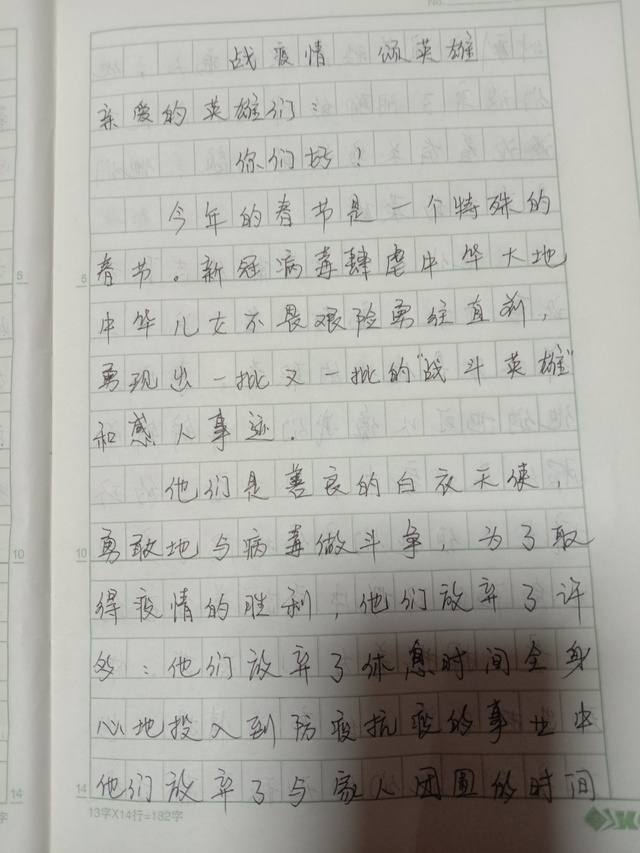 No.
战疫情 颂英雄
亲爱的英雄们：
你们好！
今年的春节是一个特殊的
春节。新冠病毒肆虐中华大地
中华儿女不畏艰险勇往直前，
勇现出一批又一批的"战斗英雄"
和感人事迹.
他们是善良的白衣天使，
勇敢地与病毒做斗争，为了取
得疫情的胜利，他们放弃了许
多：他们放弃了休息时间全身
心地投入到防疫抗疫的事业中
他们放弃了与家人团圆的时间
5
5
10
10
14
14
13字X14行=182字
字